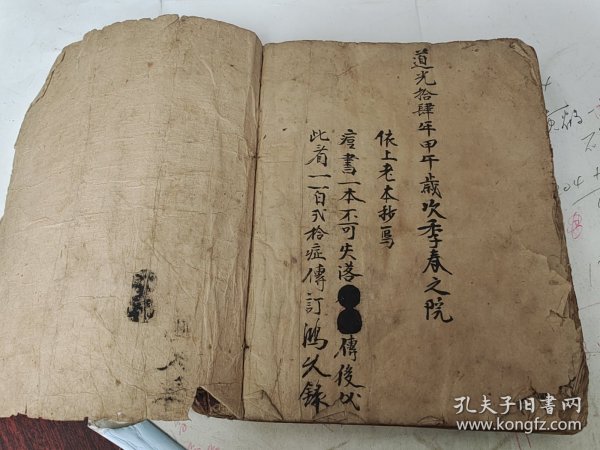 道光拾肆年甲午歲次季春之院
依上老本抄寫
痘書一本不可失落傳後代
此看一百弍拾症傳訂鴻父錄
孔夫子旧書网
www.kongfz.com